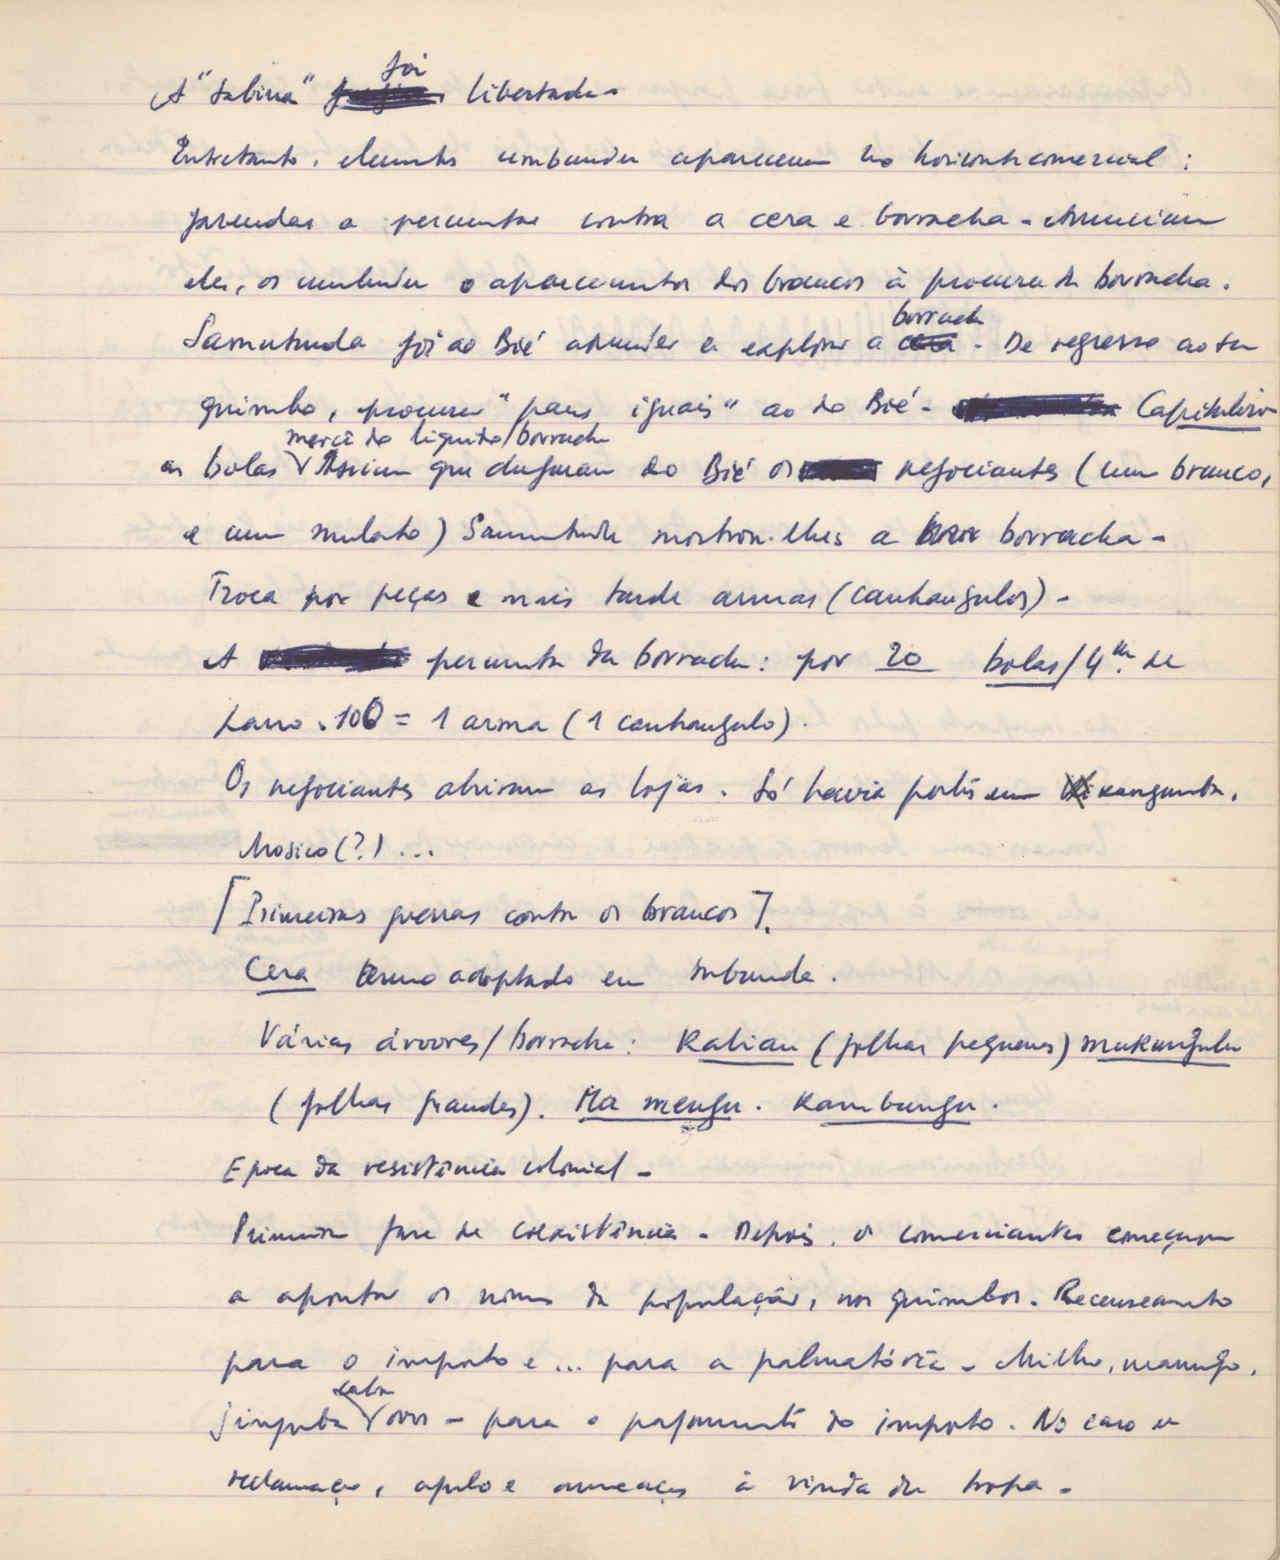 foi
A "Sabina" libertada.
Entretanto, elementos umbundu aparecem no horizonte comercial:
fazendas a permutar contra a cera e borracha. Anunciam
eles, os umbundu o aparecimento dos brancos à procura da borracha.
borracha
Samutunda foi ao Bié aprender a explorar a cera. De regresso ao seu
quimbo, procurou "paus iguais" ao do Bié. Capitulino
mercê do líquido/borracha
as bolas Assim que chegaram do Bié os negociantes (um branco,
e um mulato) Samutunda mostrou-lhes a borracha.
Troca por peças e mais tarde armas (canhangulos).
A permuta da borracha: por 20 bolas/4 m. de
pano. 100 = 1 arma (1 canhangulo).
Os negociantes abriram as lojas. Só havia fortes em Kangamba.
Moxico (?) ...
[Primeiras guerras contra os brancos].
Cera termo adoptado em mbunda.
Várias árvores/borracha: Kaliau (folhas pequenas) mukangulu
(folhas grandes). Ma mengu. Kambungu.
Epoca da resistência colonial.
Primeira fase de coexistência. Depois, os comerciantes começaram
a apontar os nomes da população, nos quimbos. Recenseamento
para o imposto e ... para a palmatória. Milho, mamugo,
jinguba ovos - para o pagamento do imposto. No caso de
reclamação, apelo e ameaças à vinda da tropa.